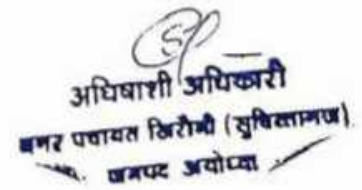 अधिषाशी अधिकारी
नगर पंचायत खिरौनी (सुचित्तागंज)
जनपद अयोध्या